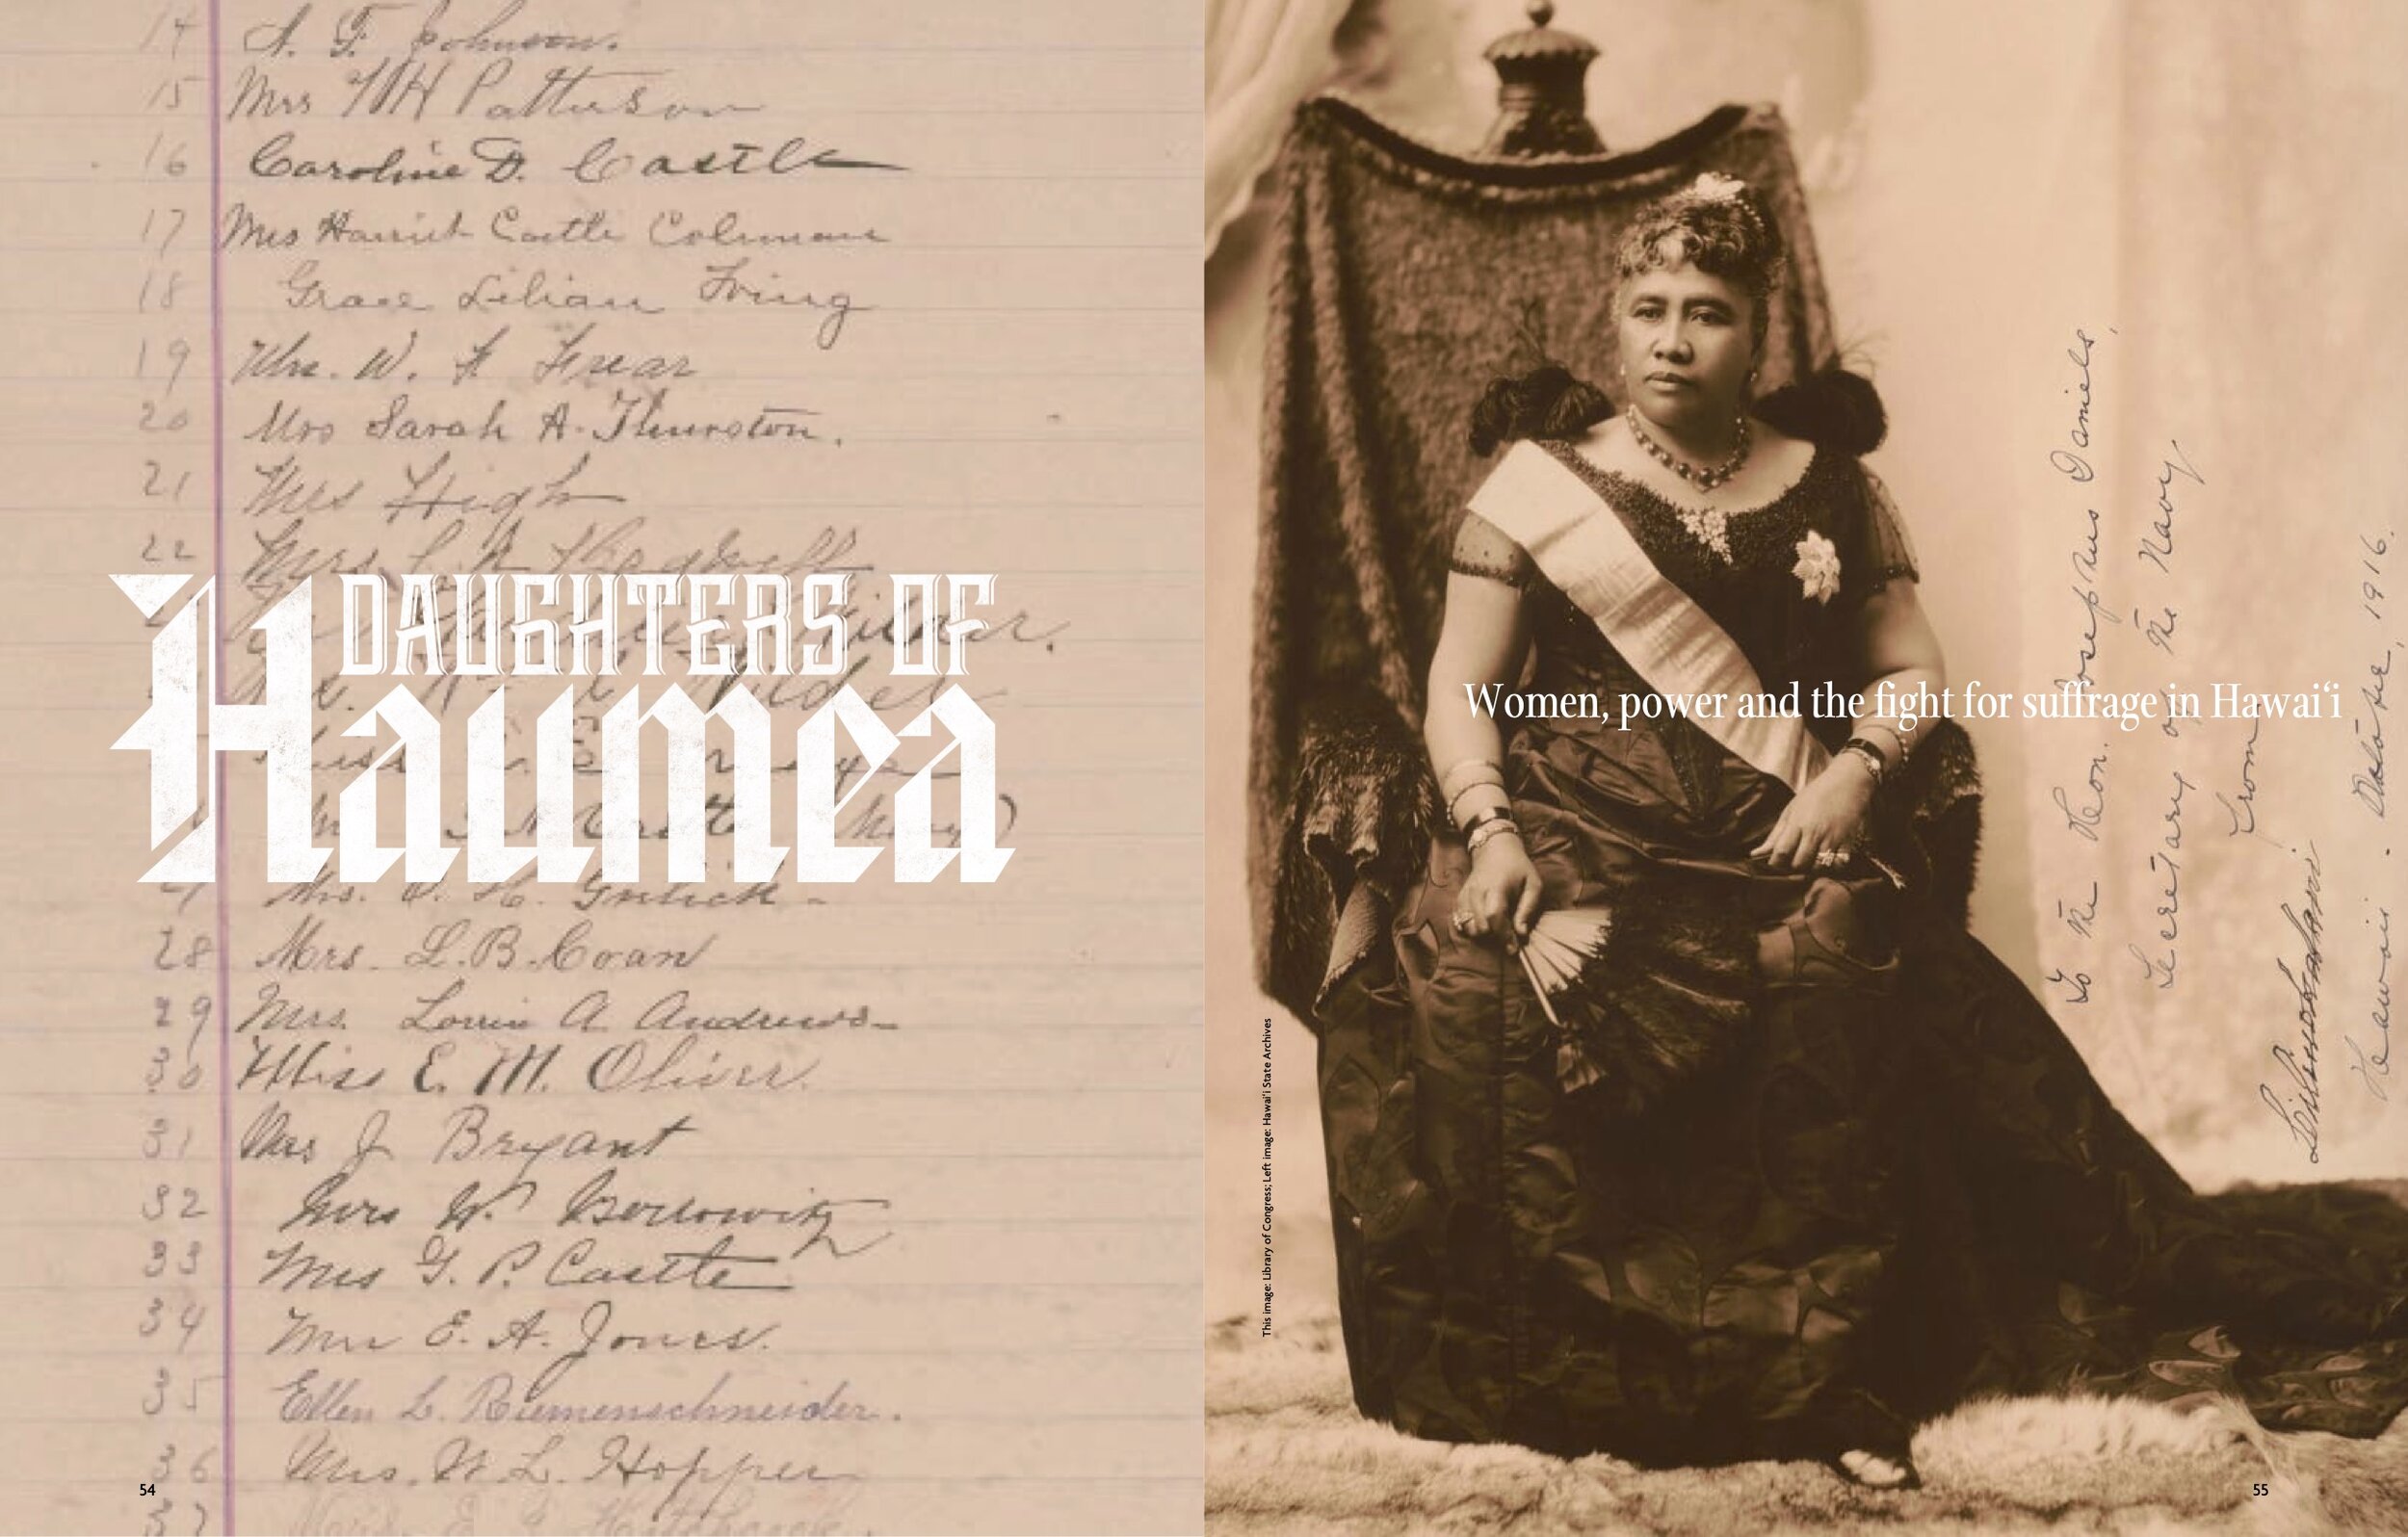 14 A. F. Johnson.
15 Mrs W H Patterson
16 Caroline D. Castle
17 Mrs Harriet Castle Coleman
18 Grace Lilian
19 Mrs. W. F. Frear
20 Mrs Sarah A. Thurston.
21 Mrs High
22 Mrs.
DAUGHTERS OF
Haumea
Mrs.
28 Mrs. L. B. Coan
29 Mrs. Lorrin A Andrews
30 Miss E. M. Oliver.
31 Mrs J Bryant
32 Mrs W.
33 Mrs G. P. Castle
34 Mrs E. A. Jones.
35 Ellen L. Riemenschneider.
36 Mrs. W. L. Hopper
37
54
Women, power and the fight for suffrage in Hawaiʻi
To the Hon. Josephus Daniels,
Secretary of the Navy
From
Liliuokalani
Hawaii. October, 1916.
This image: Library of Congress; Left image: Hawaiʻi State Archives
55